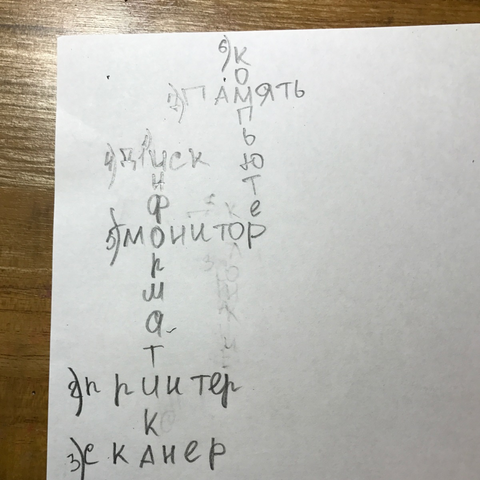 6) КОМПЬЮТЕР
7) ПАМЯТЬ
1) ИНФОРМАТИКА
4) ДИСК
5) МОНИТОР
2) ПРИНТЕР
3) СКАНЕР